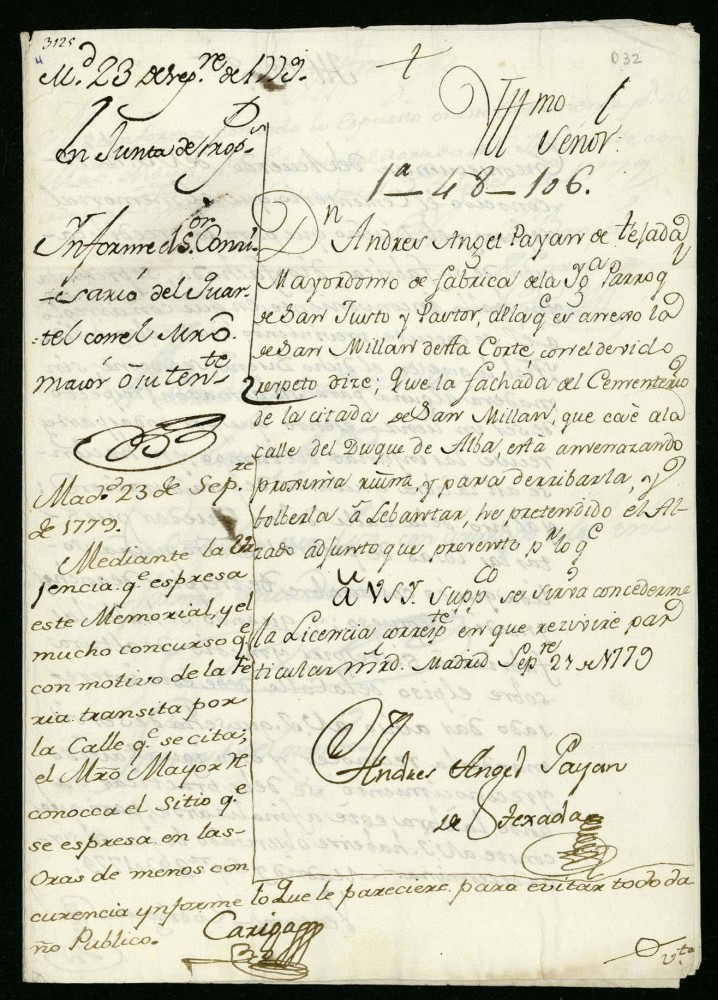 3125
032
M.d 23 de sep.re de 1779.
En Junta de Prop.s
Informe el s.or Comi-
-sario del Quar-
-tel con el Mro.
maior o su ten.te
Mad.d 23 de Sep.re
de 1779.
Mediante la Ur
jencia q.e espresa
este Memorial, y el
mucho concurso q.e
con motivo de la Fe
ria transita por
la Calle q.e se cita;
el Mro Mayor re
conocca el Sitio q.e
se espresa en las-
Oras de menos con
currencia ynforme lo que le pareciere para evitar todo da
ño Publico.
Illmo
Señor.
1a - 48 - 106.
Dn Andres Angel Payan de tejada
Mayordomo de fabrica de la Yg.a Parroq
de San Justo y Pastor, de la q.e es anexo la
de San Millan de esta Corte, con el devido
respeto dize; Que la fachada del Cementerio
de la citada de San Millan, que cae a la
calle del Duque de Alba, está amenazando
proxima ruina, y para derribarla, y
bolberla á Lebantar, he pretendido el Al-
zado adjunto que presento p.r lo q.e
A V.S.Y. Supp.co se sirva concederme
la Licencia corresp.te en que rezivire par
ticular mrd. Madrid Sep.re 21 de 1779
Andres Angel Payan
de Texada
v.ta